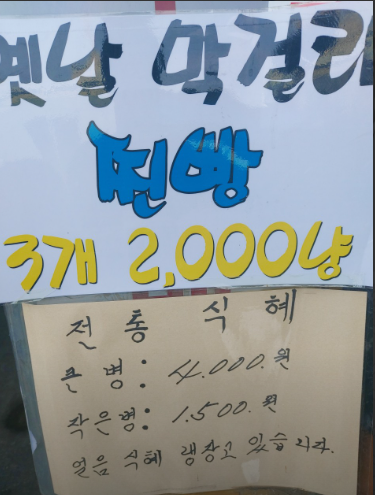 옛날 막걸리
찐빵
3개 2,000냥
전통 식혜
큰병: 4.000.원
작은병: 1.500.원
얼음 식혜 냉장고 있습니다.